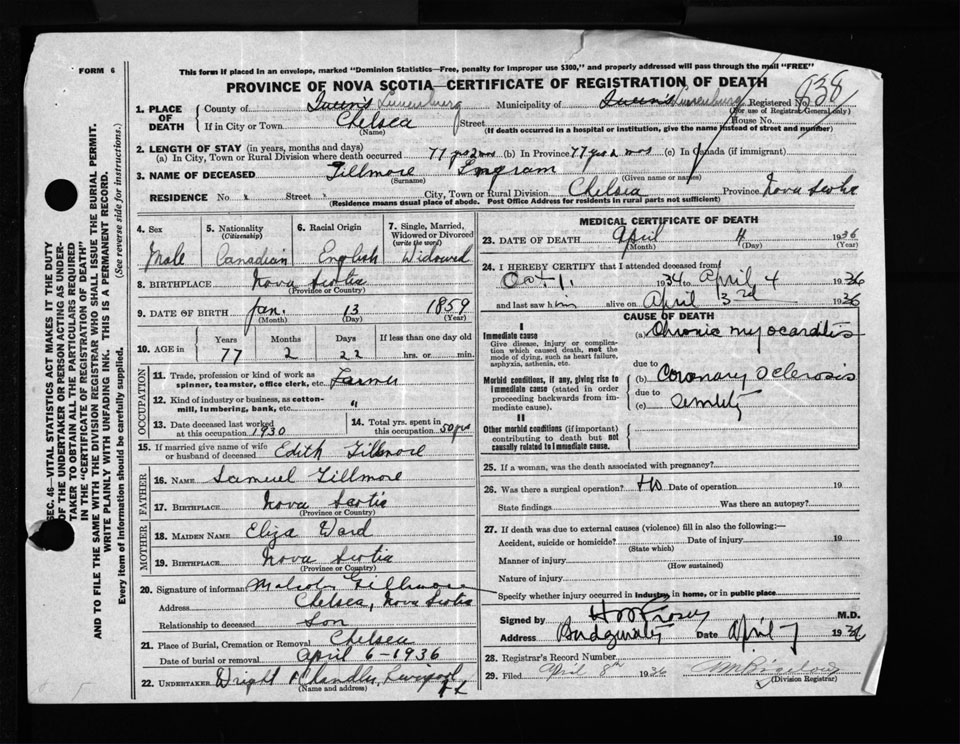 FORM 6
This form if placed in an envelope, marked "Dominion Statistics—Free, penalty for improper use $300," and properly addressed will pass through the mail "FREE"
PROVINCE OF NOVA SCOTIA—CERTIFICATE OF REGISTRATION OF DEATH
838
1. PLACE OF DEATH
County of Queen's Lunenburg Municipality of Queen's Lunenburg Registered No.
(For use of Registrar General only)
If in City or Town Chelsea Street House No.
(Name) (If death occurred in a hospital or institution, give the name instead of street and number)
2. LENGTH OF STAY (in years, months and days)
(a) In City, Town or Rural Division where death occurred 77 yrs 2 mos (b) In Province 77 yrs 2 mos (c) In Canada (if immigrant)
3. NAME OF DECEASED Fillmore Ingram
(Surname) (Given name or names)
RESIDENCE No. x Street x City, Town or Rural Division Chelsea Province Nova Scotia
(Residence means usual place of abode. Post Office Address for residents in rural parts not sufficient)
4. Sex Male
5. Nationality (Citizenship) Canadian
6. Racial Origin English
7. Single, Married, Widowed or Divorced (write the word) Widowed
8. BIRTHPLACE Nova Scotia
(Province or Country)
9. DATE OF BIRTH Jan. 13 1859
(Month) (Day) (Year)
10. AGE in Years Months Days If less than one day old
77 2 22 hrs. or min.
OCCUPATION
11. Trade, profession or kind of work as spinner, teamster, office clerk, etc. Farmer
12. Kind of industry or business, as cotton-mill, lumbering, bank, etc. "
13. Date deceased last worked at this occupation 1930
14. Total yrs. spent in this occupation 50 yrs
15. If married give name of wife or husband of deceased Edith Fillmore
FATHER
16. NAME Samuel Fillmore
17. BIRTHPLACE Nova Scotia
(Province or Country)
MOTHER
18. MAIDEN NAME Eliza Ward
19. BIRTHPLACE Nova Scotia
(Province or Country)
20. Signature of informant Malcolm Fillmore
Address Chelsea, Nova Scotia
Relationship to deceased Son
21. Place of Burial, Cremation or Removal Chelsea
Date of burial or removal April 6 - 1936
22. UNDERTAKER Wright & Chandler, Liverpool
(Name and address)
MEDICAL CERTIFICATE OF DEATH
23. DATE OF DEATH April 4 1936
(Month) (Day) (Year)
24. I HEREBY CERTIFY that I attended deceased from
Oct 1, 1934 to April 4 1936
and last saw him alive on April 3rd 1936
CAUSE OF DEATH
I
Immediate cause
Give disease, injury or complication which caused death, not the mode of dying, such as heart failure, asphyxia, asthenia, etc.
(a) Chronic myocarditis
due to
Morbid conditions, if any, giving rise to immediate cause (stated in order proceeding backwards from immediate cause).
(b) Coronary Sclerosis
due to
(c) Senility
II
Other morbid conditions (if important) contributing to death but not causally related to immediate cause.
25. If a woman, was the death associated with pregnancy?
26. Was there a surgical operation? No Date of operation 19
State findings Was there an autopsy?
27. If death was due to external causes (violence) fill in also the following:—
Accident, suicide or homicide? Date of injury 19
(State which)
Manner of injury
(How sustained)
Nature of injury
Specify whether injury occurred in industry, in home, or in public place
Signed by M.D.
Address Bridgewater Date April 7 1936
28. Registrar's Record Number
29. Filed April 8th 1936
(Division Registrar)
SEC. 46—VITAL STATISTICS ACT MAKES IT THE DUTY
OF THE UNDERTAKER OR PERSON ACTING AS UNDER-
TAKER TO OBTAIN ALL THE PARTICULARS REQUIRED
IN THE "CERTIFICATE OF REGISTRATION OF DEATH"
AND TO FILE THE SAME WITH THE DIVISION REGISTRAR WHO SHALL ISSUE THE BURIAL PERMIT.
WRITE PLAINLY WITH UNFADING INK. THIS IS A PERMANENT RECORD.
Every item of Information should be carefully supplied. (See reverse side for instructions.)